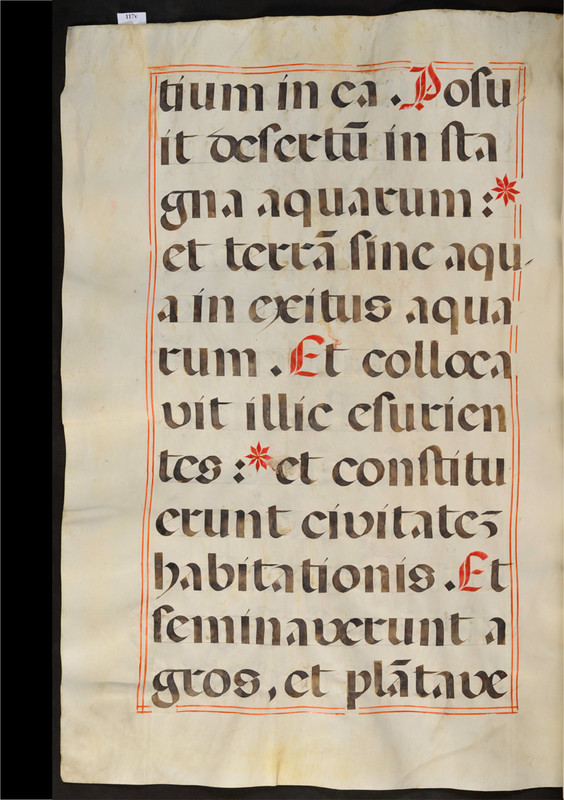 117v
tium in ea. Posu
it desertū in sta
gna aquarum:*
et terrā sine aqu
a in exitus aqua
rum. Et colloca
vit illic esurien
tes:* et constitu
erunt civitatez
habitationis. Et
seminaverunt a
gros, et plātave